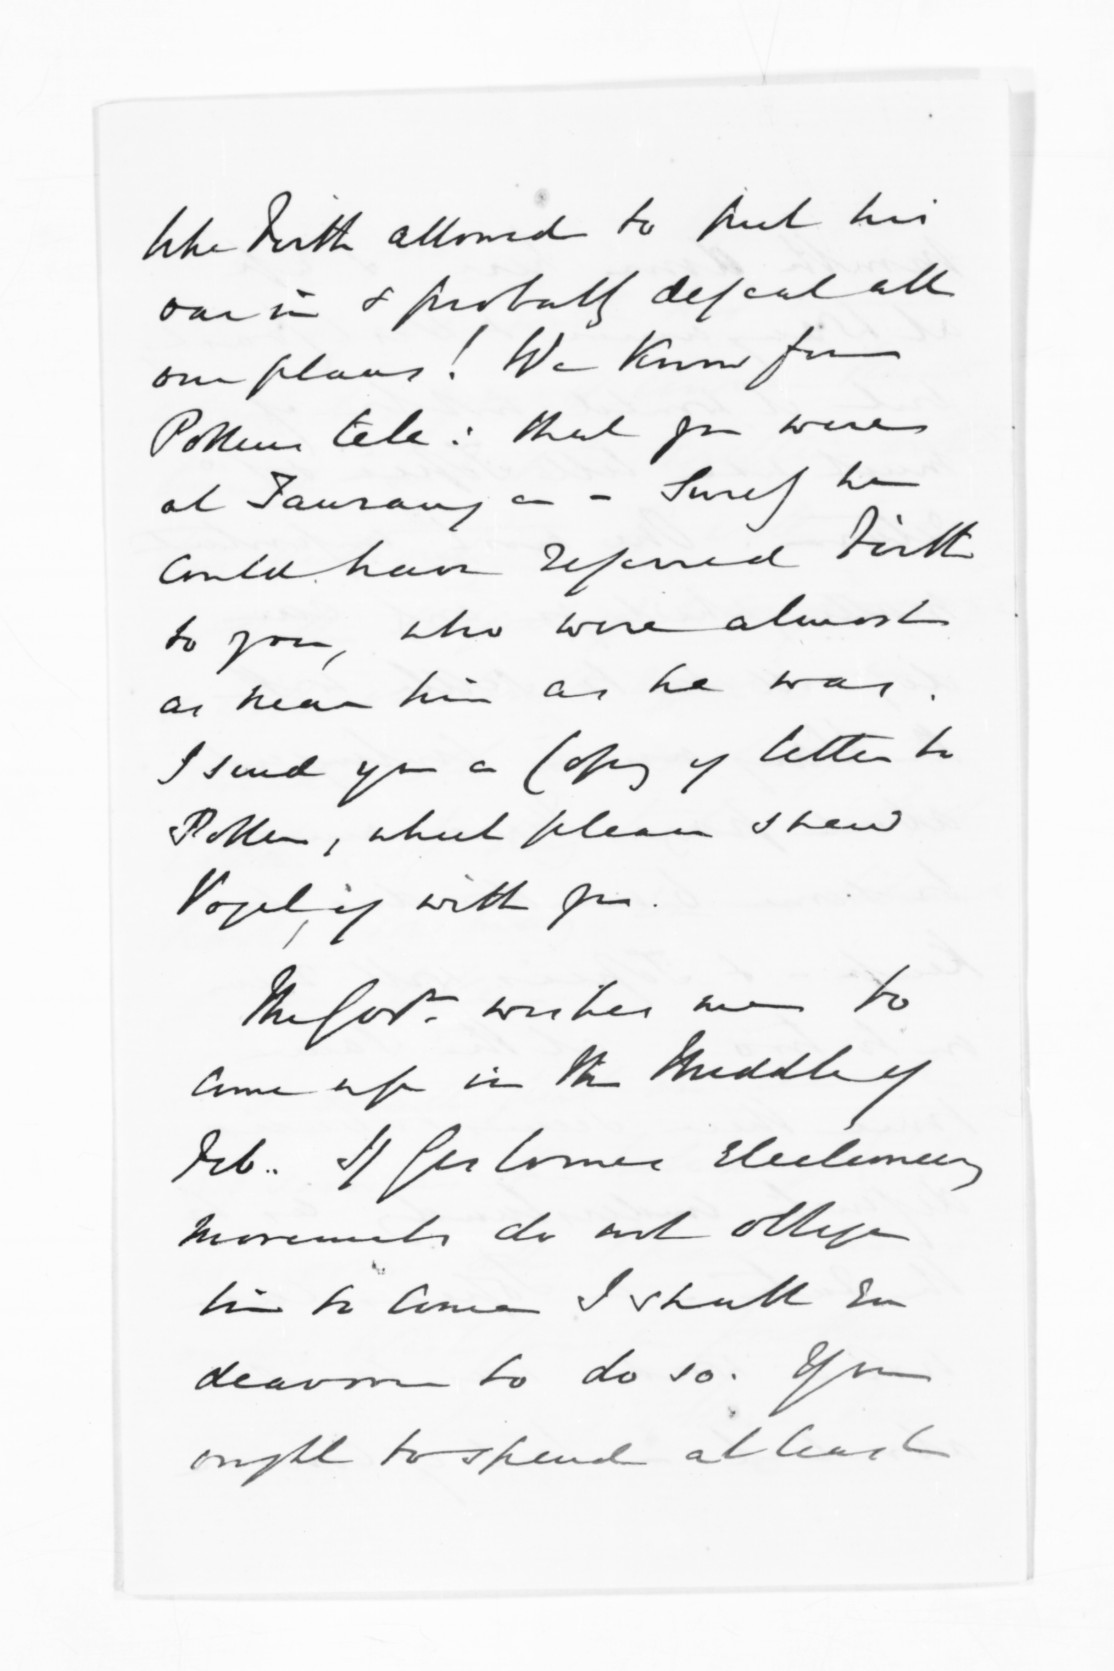 like Firth allowed to put his
oar in & probably defeat all
our plans! We know from
Pollens tele: that you were
at Tauranga - Surely he
could have referred Firth
to you, who were almost
as near him as he was.
I send you a Copy of letter to
Pollen, which please shew
Vogel, if with you.
The Govr. wishes me to
come up in the Middle of
Feb.. If Gisborne electioneering
movements do not oblige
him to come I shall En
deavour to do so. You
ought to spend at least